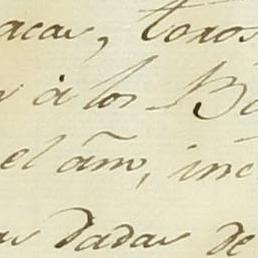 acas, toros
à los B
el año, inc
as dadas de